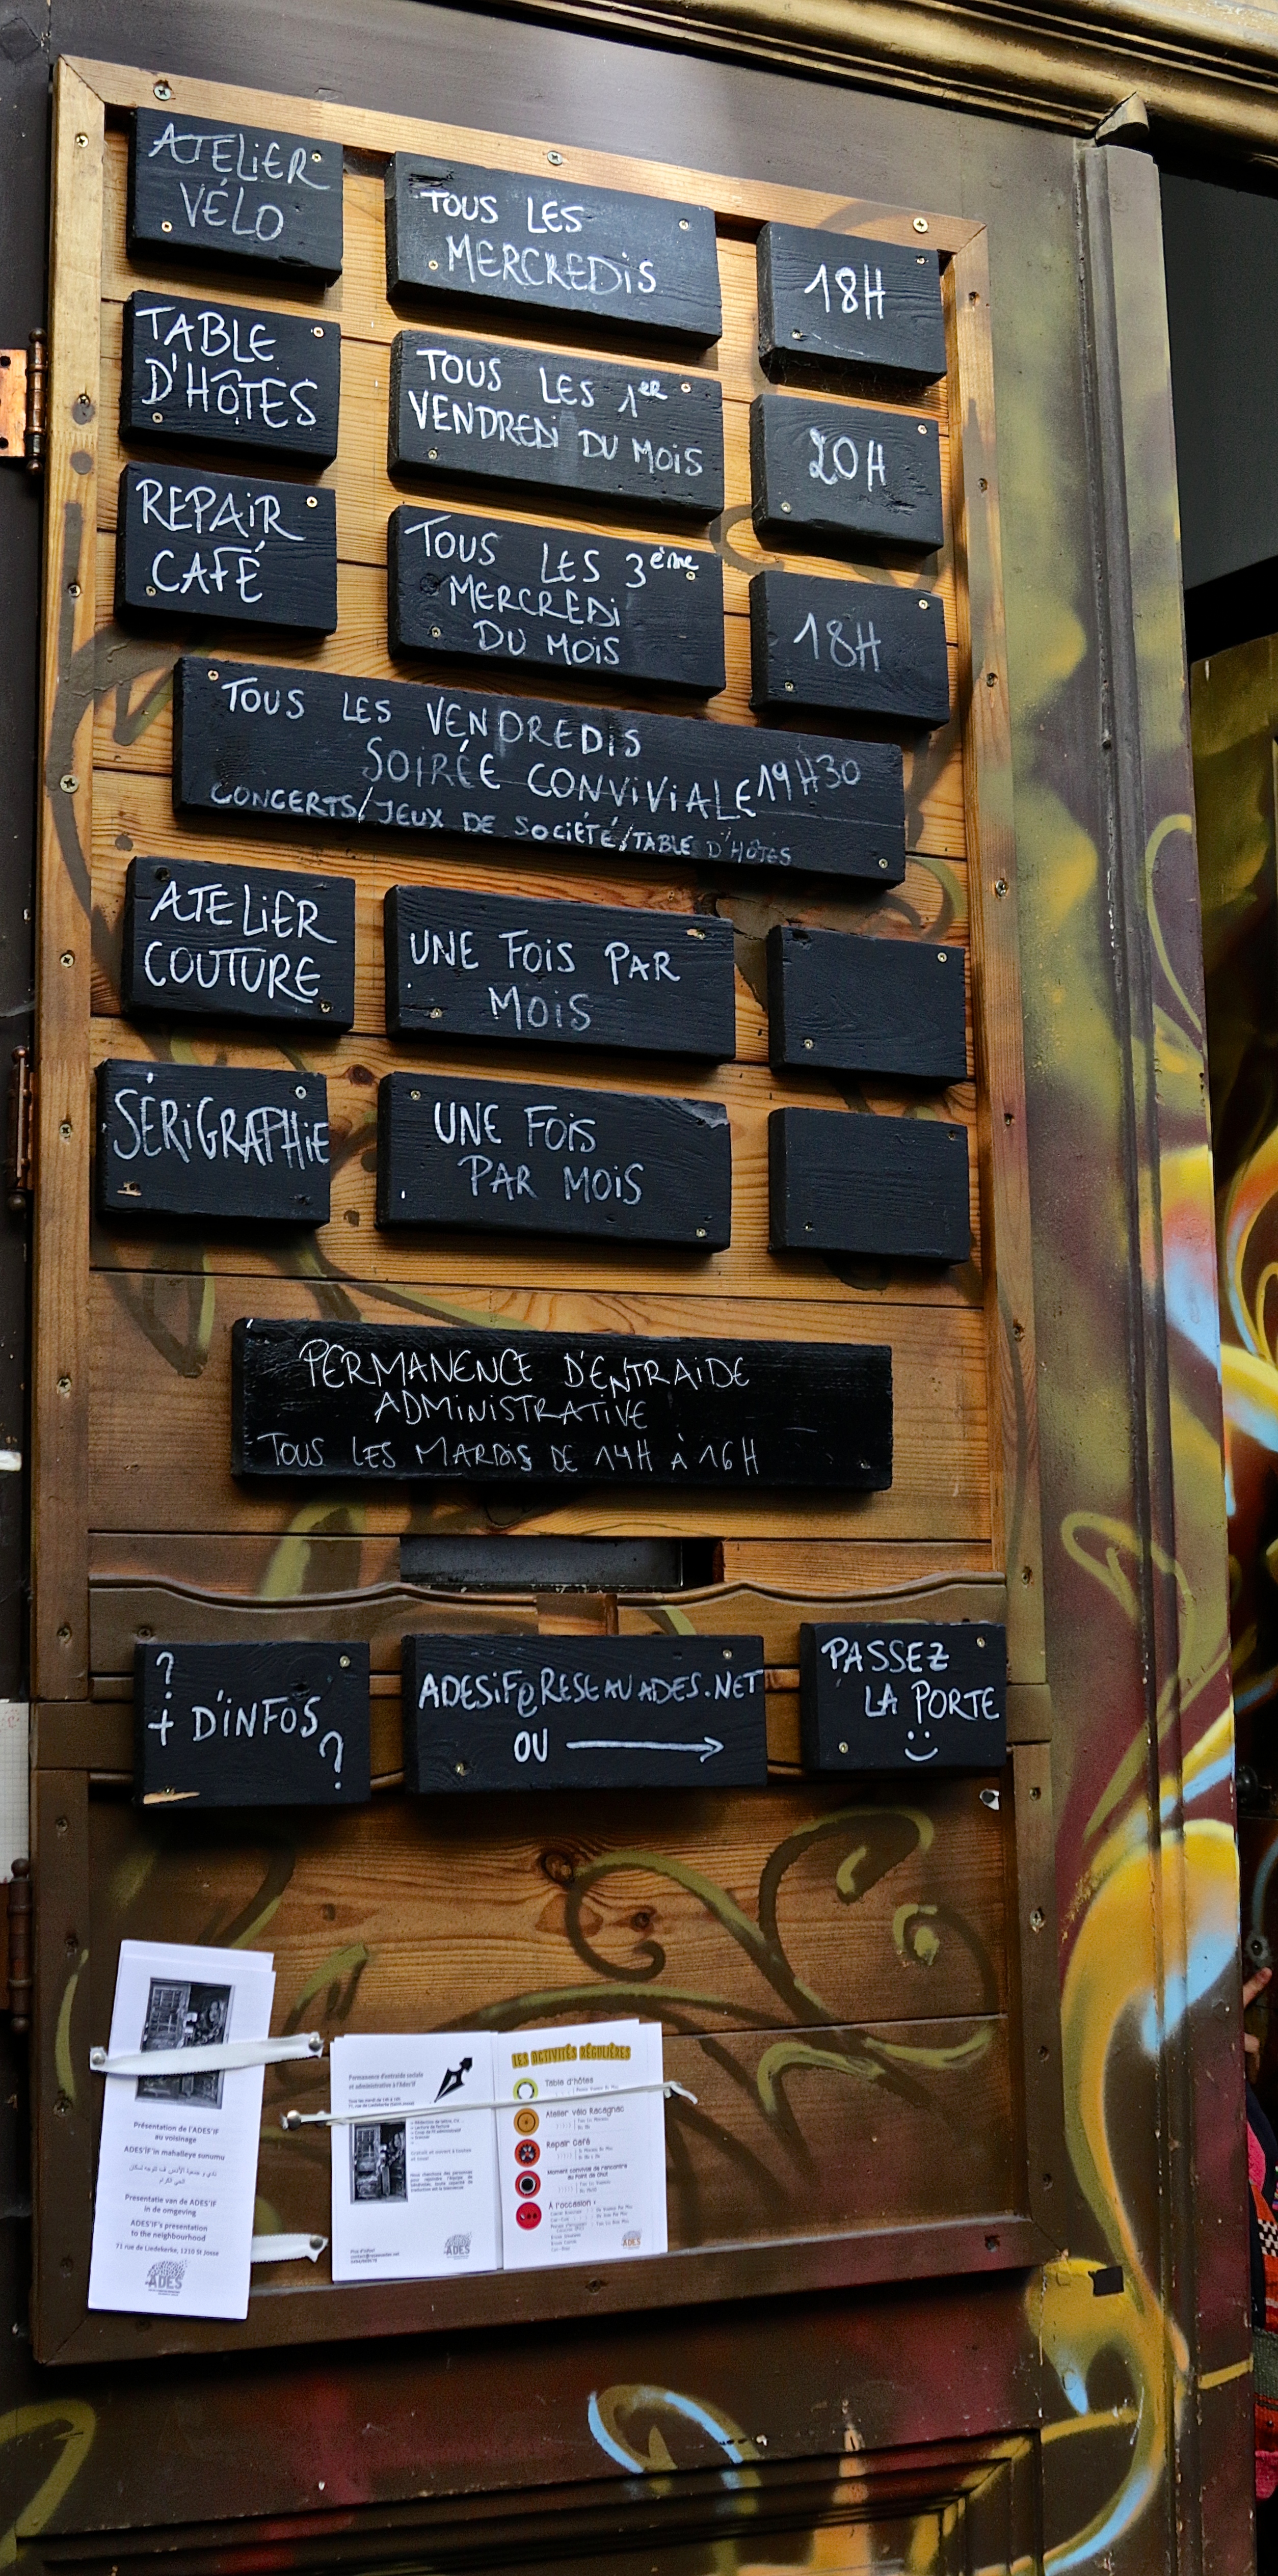 ATELIER
VÉLO
TOUS LES
MERCREDIS
18H
TABLE
D'HÔTES
TOUS LES 1er
VENDREDI DU MOIS
20H
REPAIR
CAFÉ
TOUS LES 3ème
MERCREDI
DU MOIS
18H
TOUS LES VENDREDIS
SOIRÉE CONVIVIALE 19H30
CONCERTS/JEUX DE SOCIÉTÉ/TABLE D'HÔTES
ATELIER
COUTURE
UNE FOIS PAR
MOIS
SÉRIGRAPHIE
UNE FOIS
PAR MOIS
PERMANENCE D'ENTRAIDE
ADMINISTRATIVE
TOUS LES MARDIS DE 14H À 16H
?
+ D'INFOS
?
ADESIF@RESEAUADES.NET
OU →
PASSEZ
LA PORTE
Présentation de l'ADES'IF
au voisinage
ADES'IF'in mahalleye sunumu
Presentatie van de ADES'IF
in de omgeving
ADES'IF's presentation
to the neighbourhood
71 rue de Liedekerke, 1210 St Josse
ADES
Permanence d'entraide sociale
et administrative à l'Ades'if
ADES
LES ACTIVITÉS RÉGULIÈRES
Table d'hôtes
Atelier vélo Racagnac
Repair Café
Moment convivial de rencontre
au Point de Chut
À l'occasion :
ADES